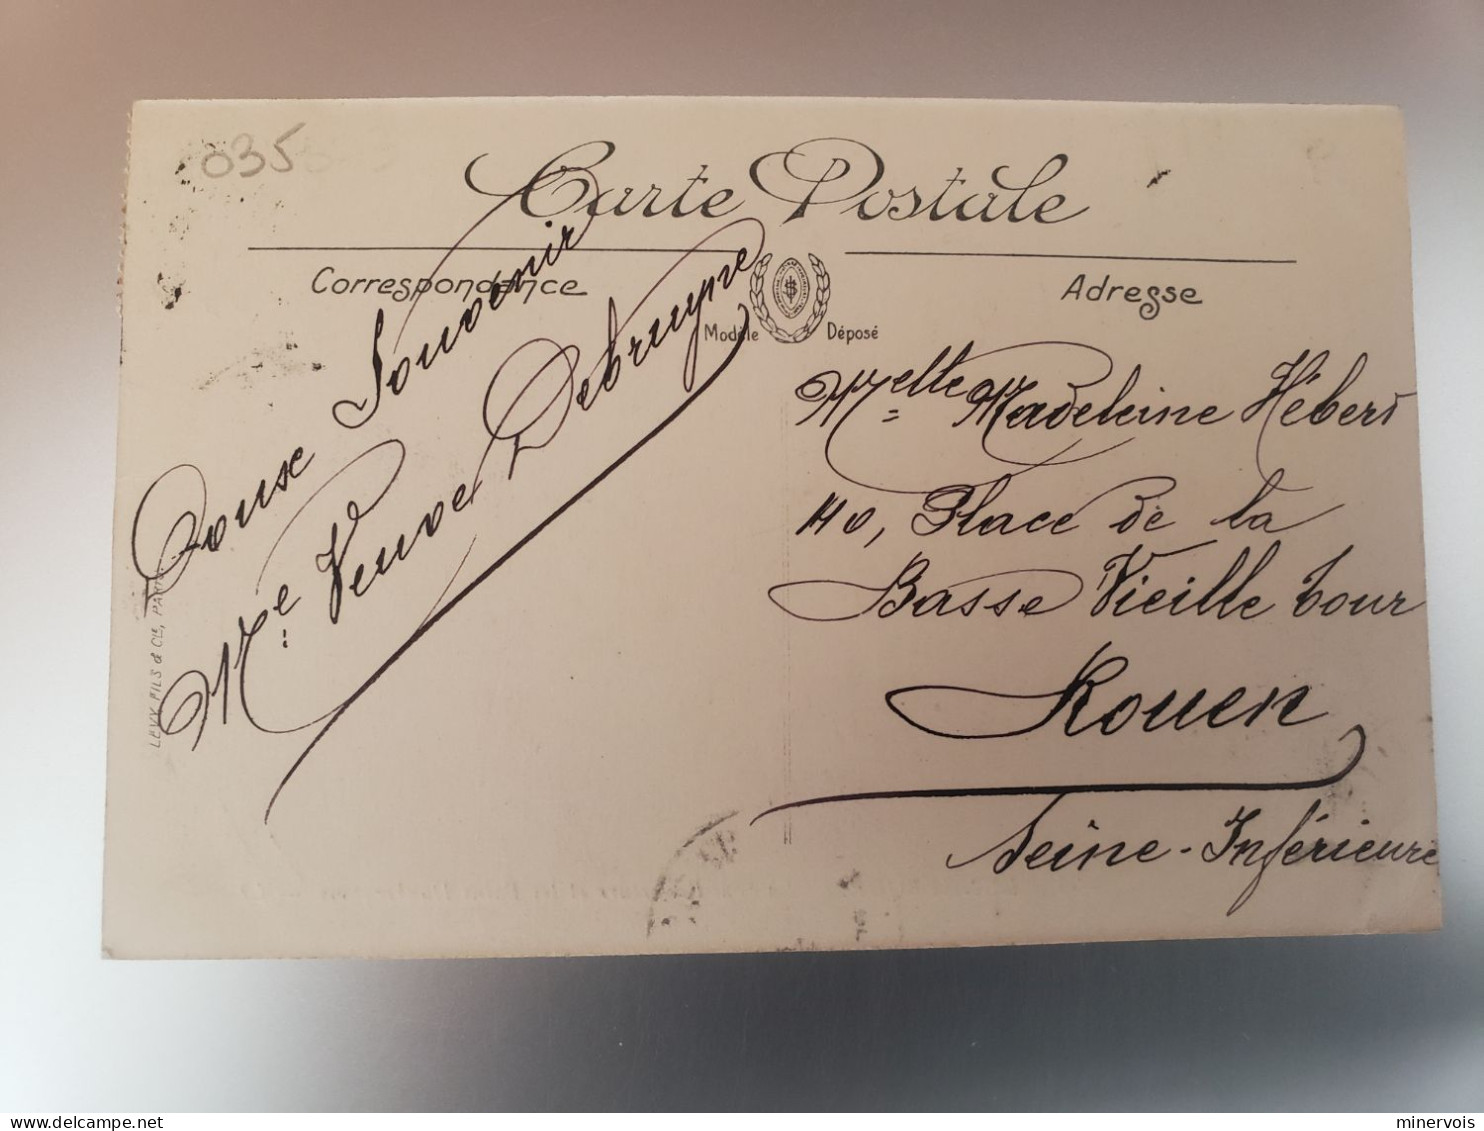 035
Carte Postale
Correspondance
Adresse
Modèle Déposé
Doux Souvenir
Mme Veuve Debruyne
Melle Madeleine Hébert
40, Place de la
Basse Vieille Tour
Rouen
Seine-Inférieure
LEVY FILS & Cie, PARIS
minervois